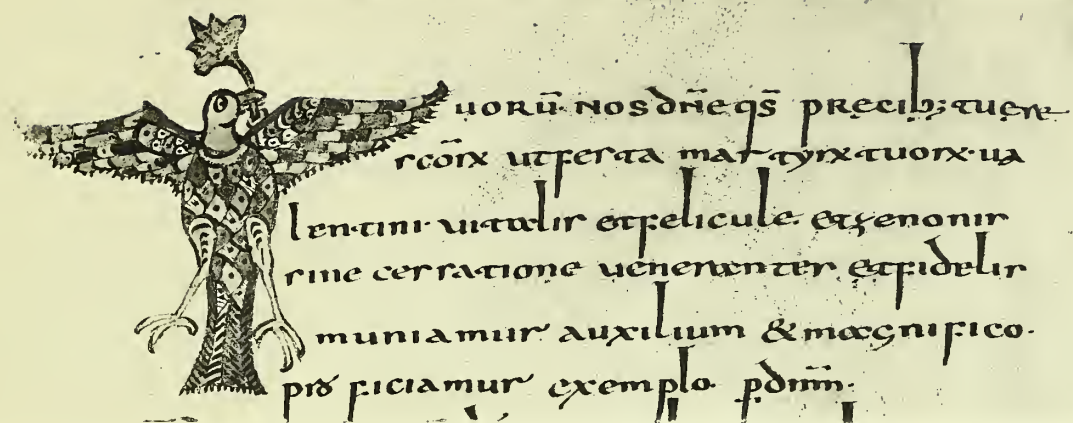 uorū nos dñe qs̄ precib; tuere
scōrx ut festa martyrx tuorx ua
lentini uitalis et felicule et zenonis
sine cessatione uenerantes et fidelis
muniamur auxilium & magnifico
proficiamur exemplo p dñm